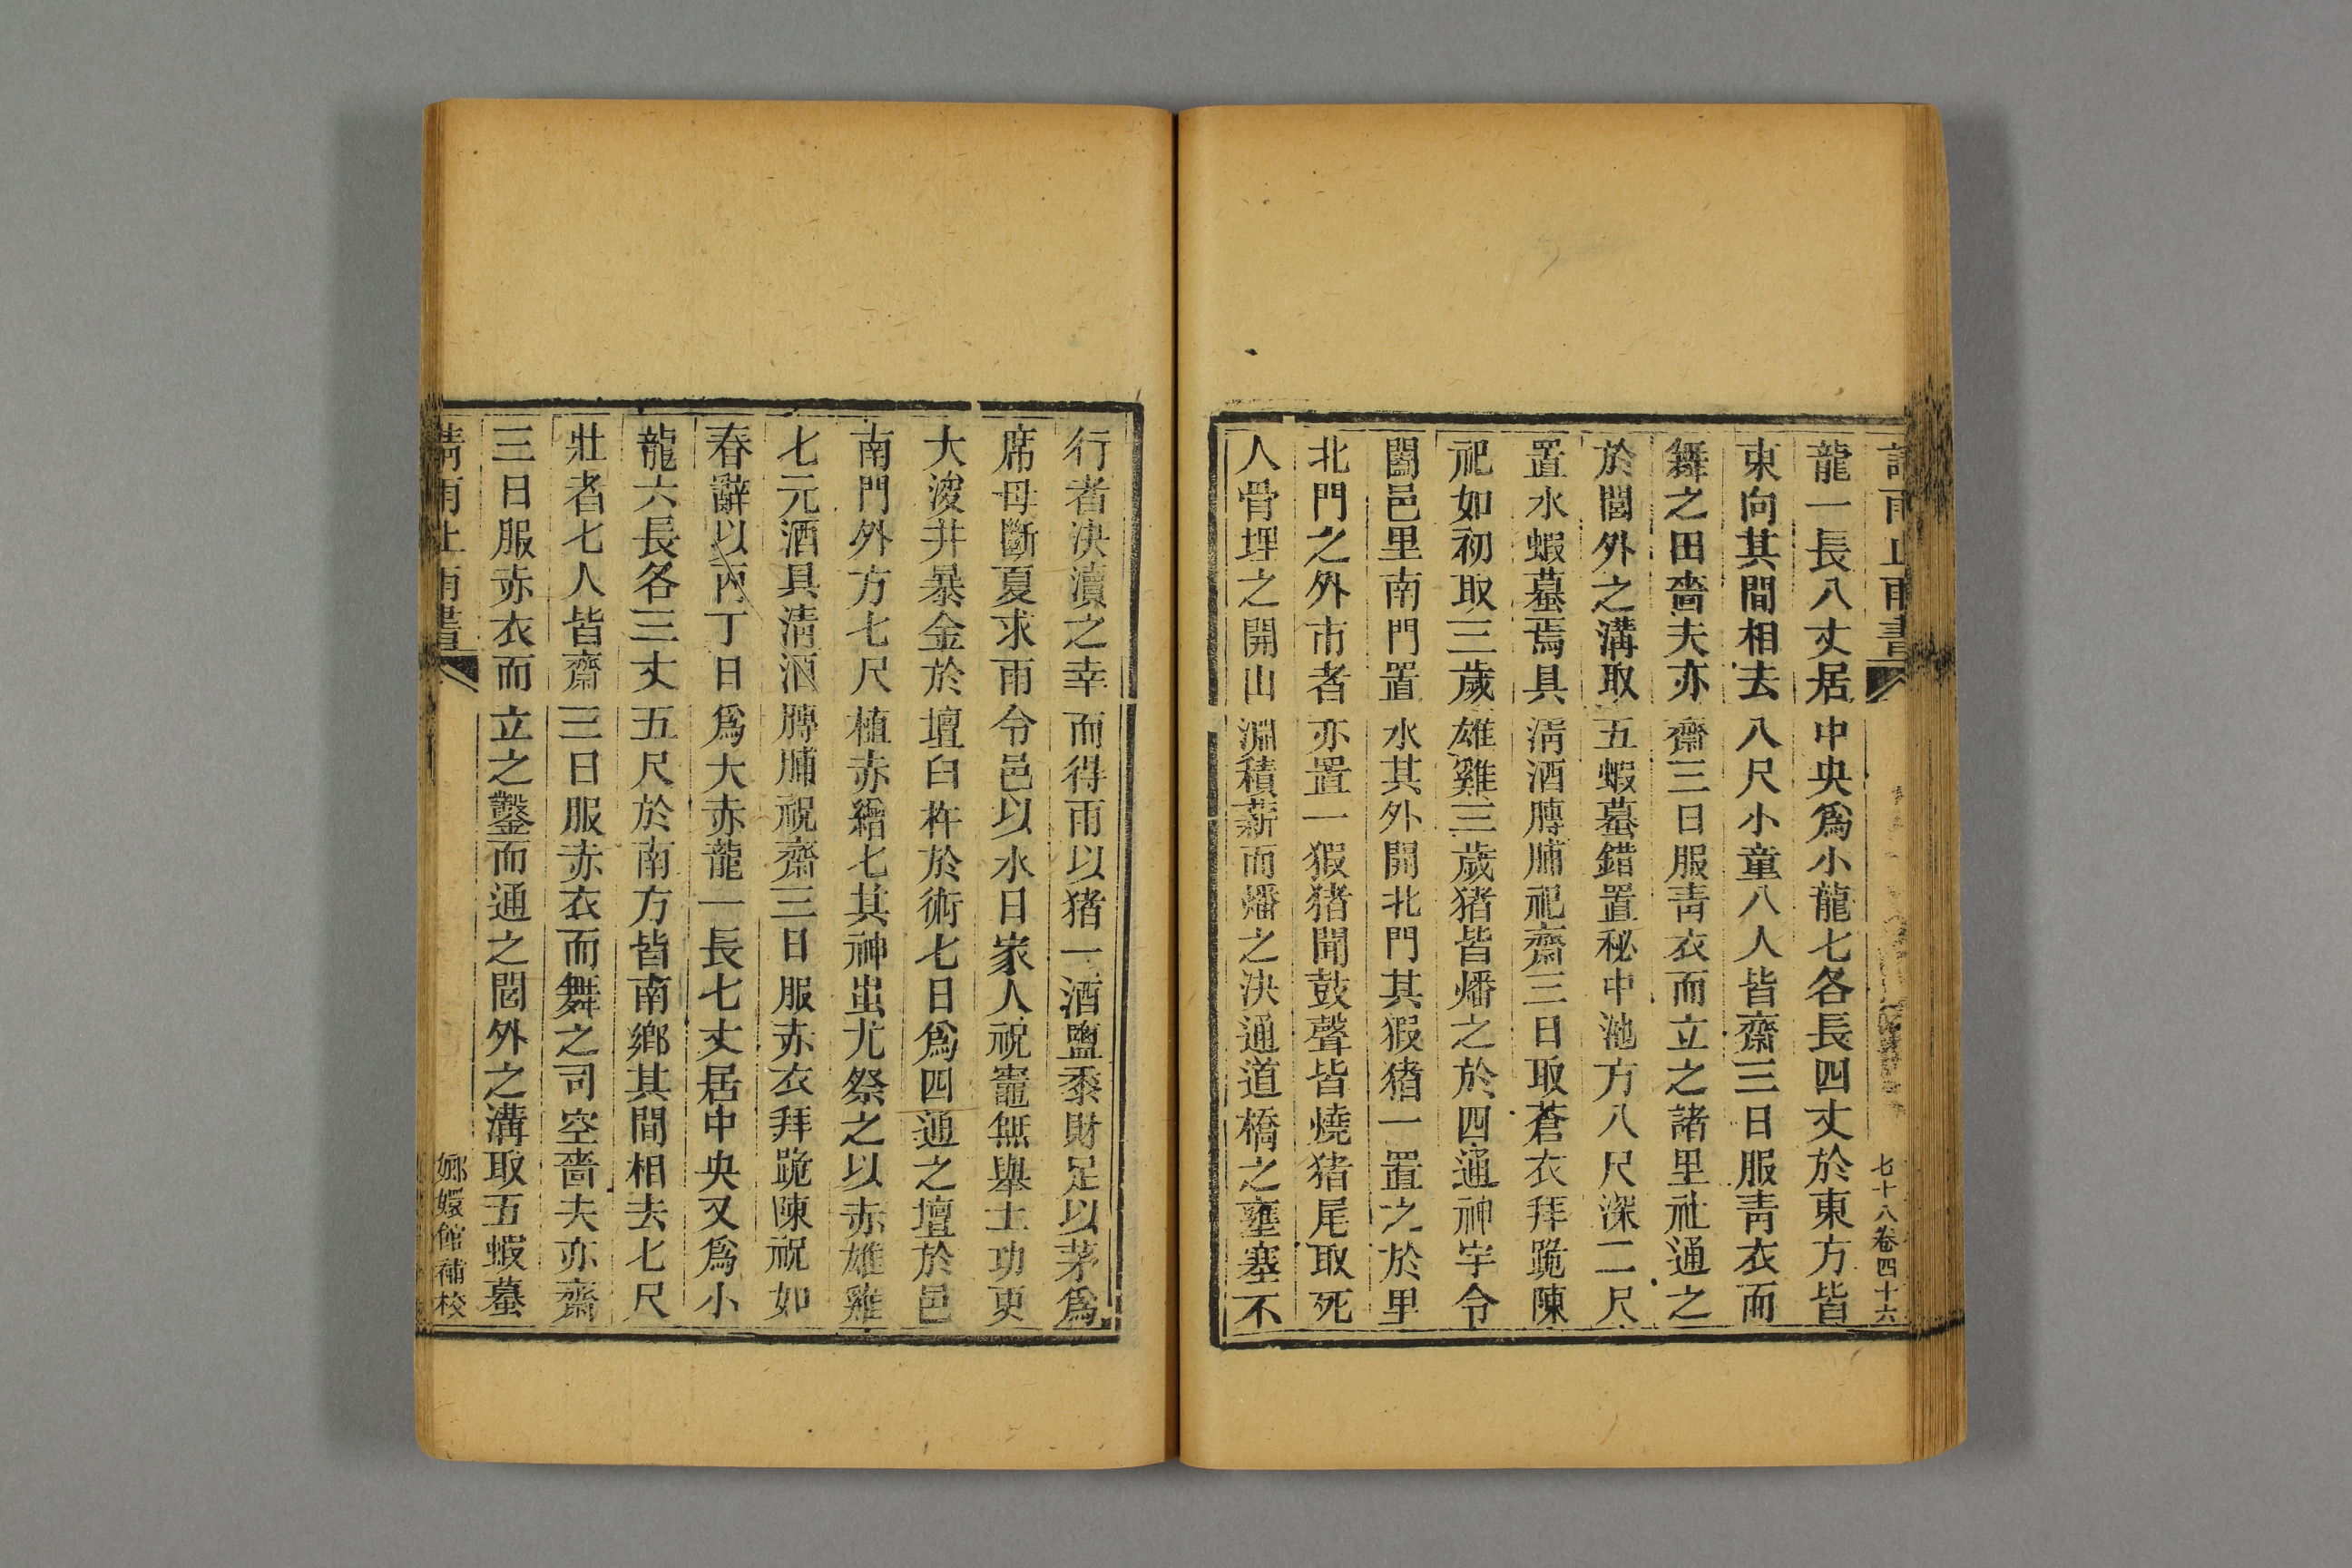 請雨止雨書
七十八卷四十六
龍一長八丈居中央爲小龍七各長四丈於東方皆
東向其間相去八尺小童八人皆齋三日服靑衣而
舞之田嗇夫亦齋三日服靑衣而立之諸里社通之
於閭外之溝取五蝦蟇錯置秘中池方八尺深二尺
置水蝦蟇焉具淸酒膊脯祀齋三日取蒼衣拜跪陳
祀如初取三歲雄雞三歲猪皆燔之於四通神宇令
闔邑里南門置水其外開北門其猳猪一置之於里
北門之外市者亦置一猳猪聞鼓聲皆燒猪尾取死
人骨埋之開山淵積薪而燔之決通道橋之壅塞不
行者決瀆之幸而得雨以猪一酒鹽黍財足以茅爲
席毋斷夏求雨令邑以水日家人祝竈無舉土功更
大浚井暴金於壇臼杵於術七日爲四通之壇於邑
南門外方七尺植赤繒七其神蚩尤祭之以赤雄雞
七元酒具淸酒膊脯祝齋三日服赤衣拜跪陳祝如
春辭以丙丁日爲大赤龍一長七丈居中央又爲小
龍六長各三丈五尺於南方皆南鄉其間相去七尺
壯者七人皆齋三日服赤衣而舞之司空嗇夫亦齋
三日服赤衣而立之鑿而通之閭外之溝取五蝦蟇
請雨止雨書
嫏嬛館補校